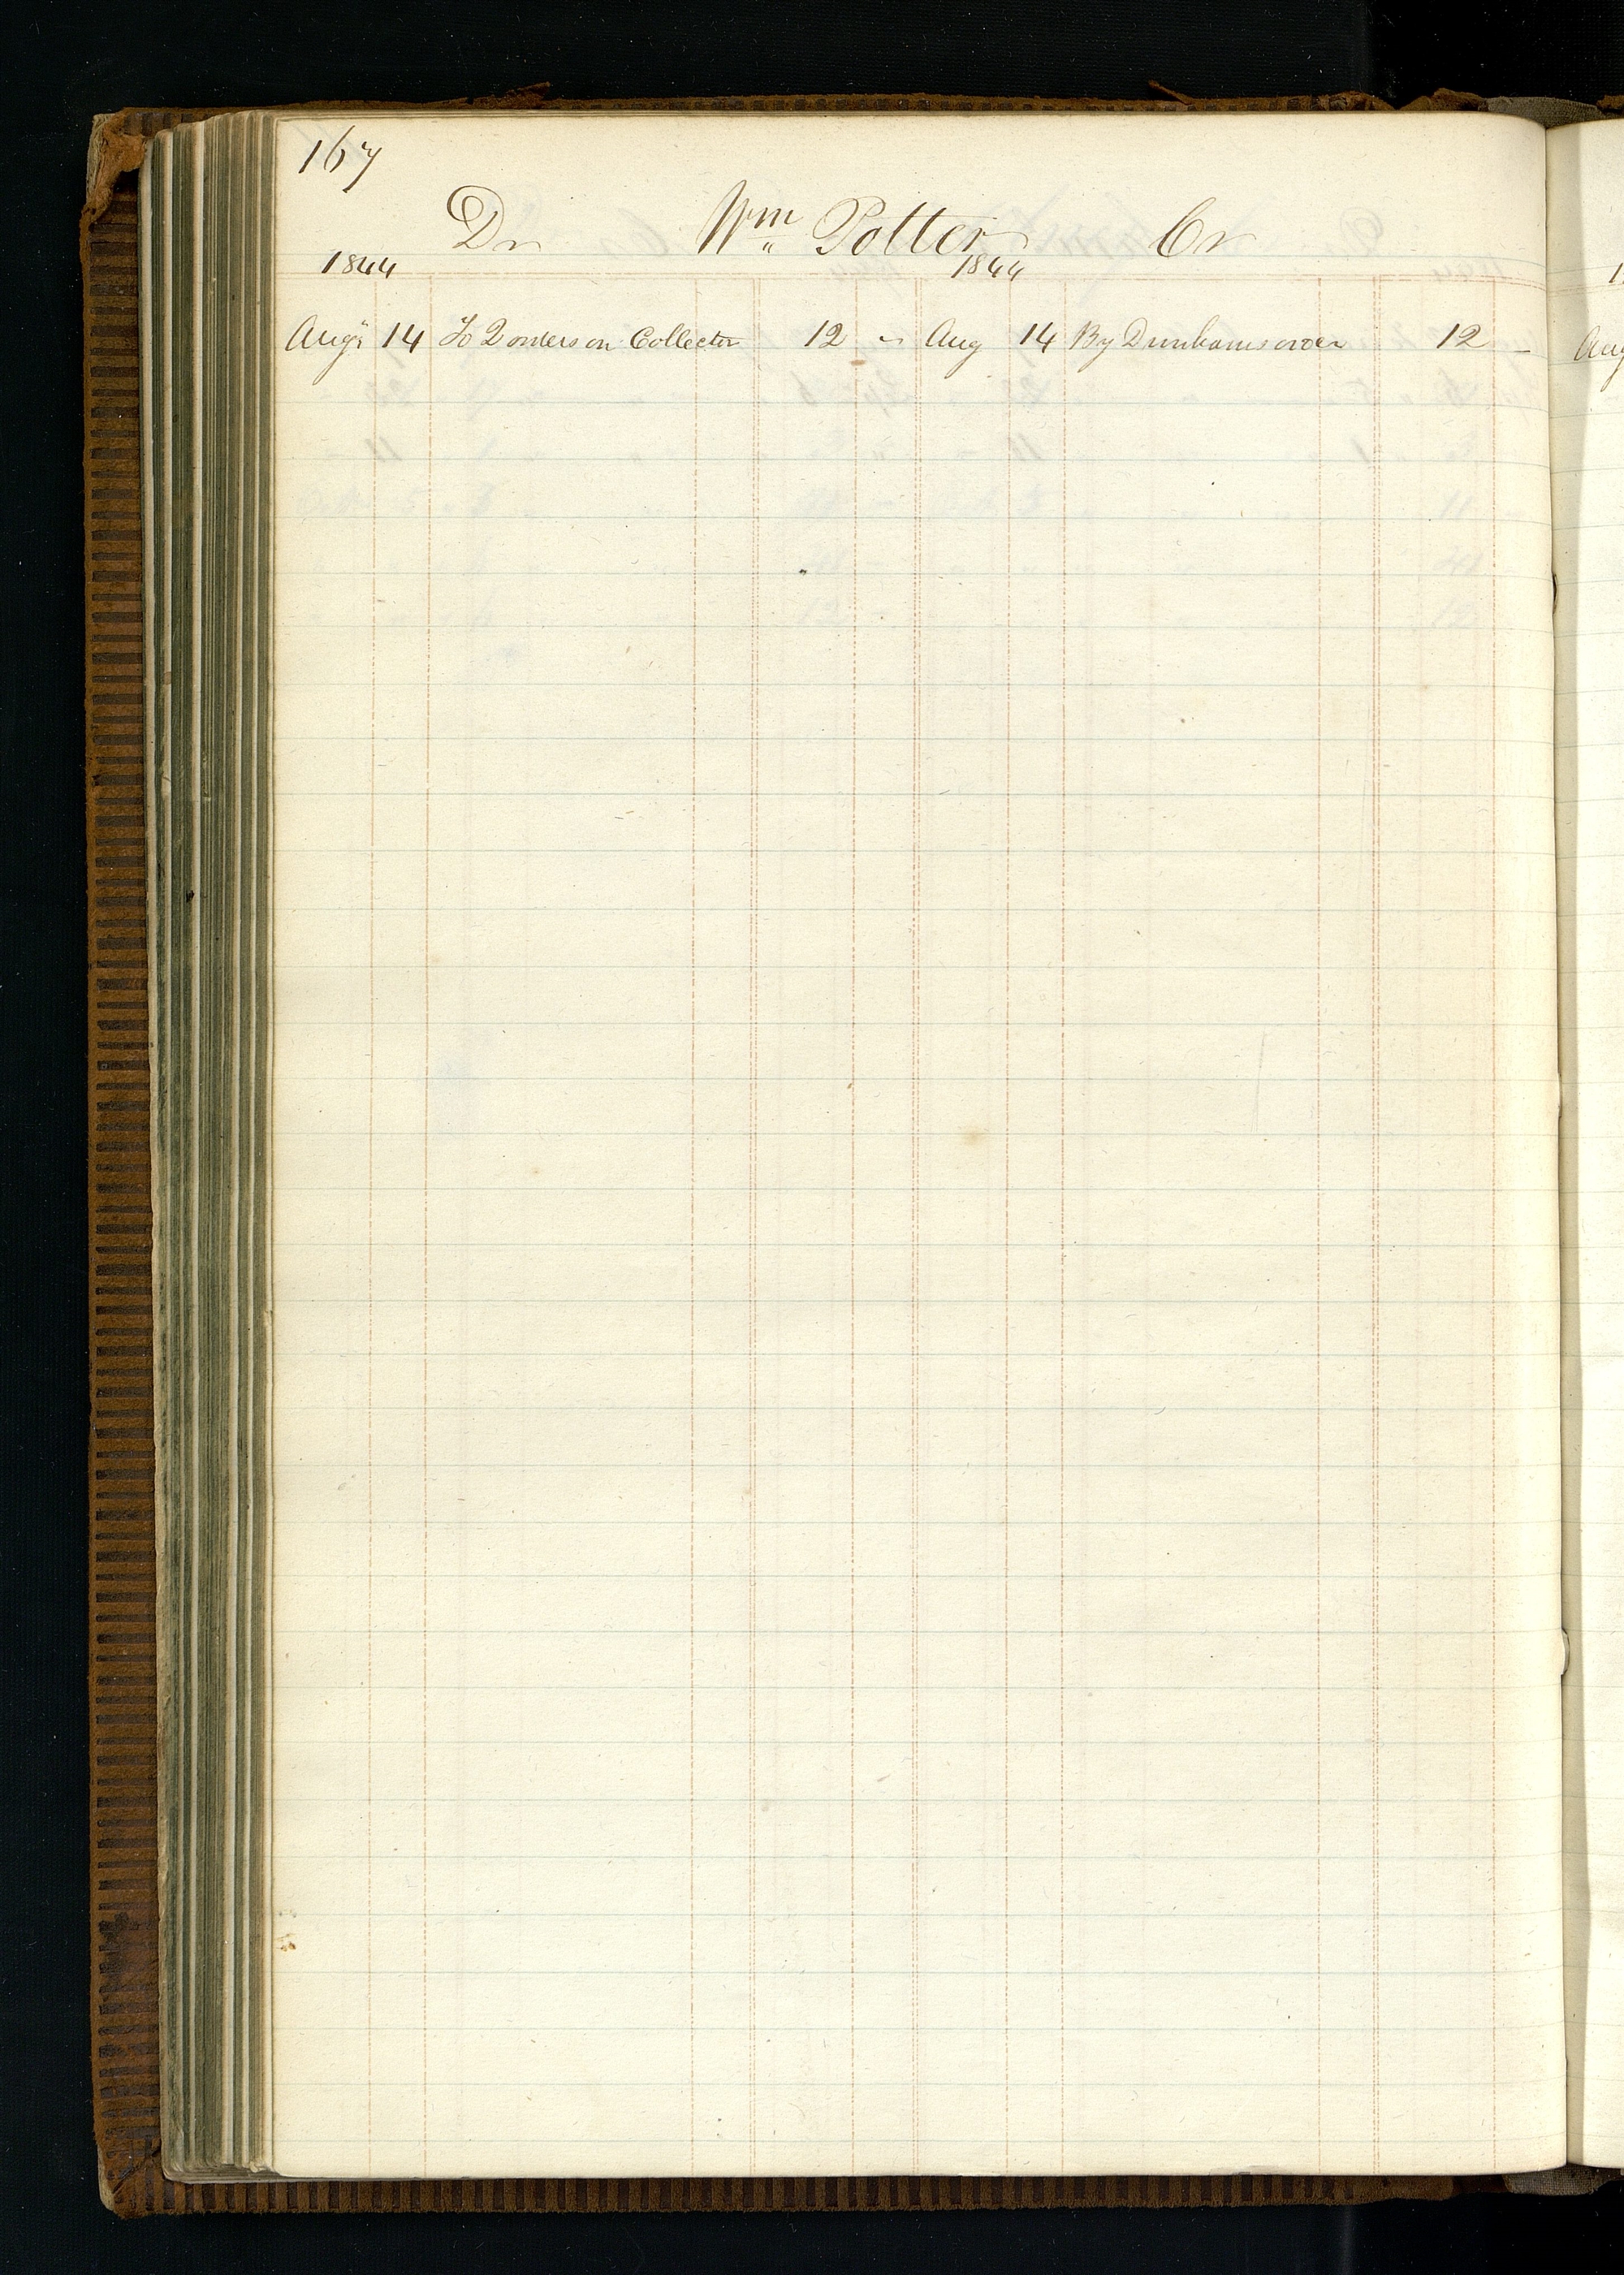 167
Dr Wm Potter Cr
1844 1844
Augt 14 To 2 orders on Collector 12 - Aug 14 By Dunhams order 12 -
Aug